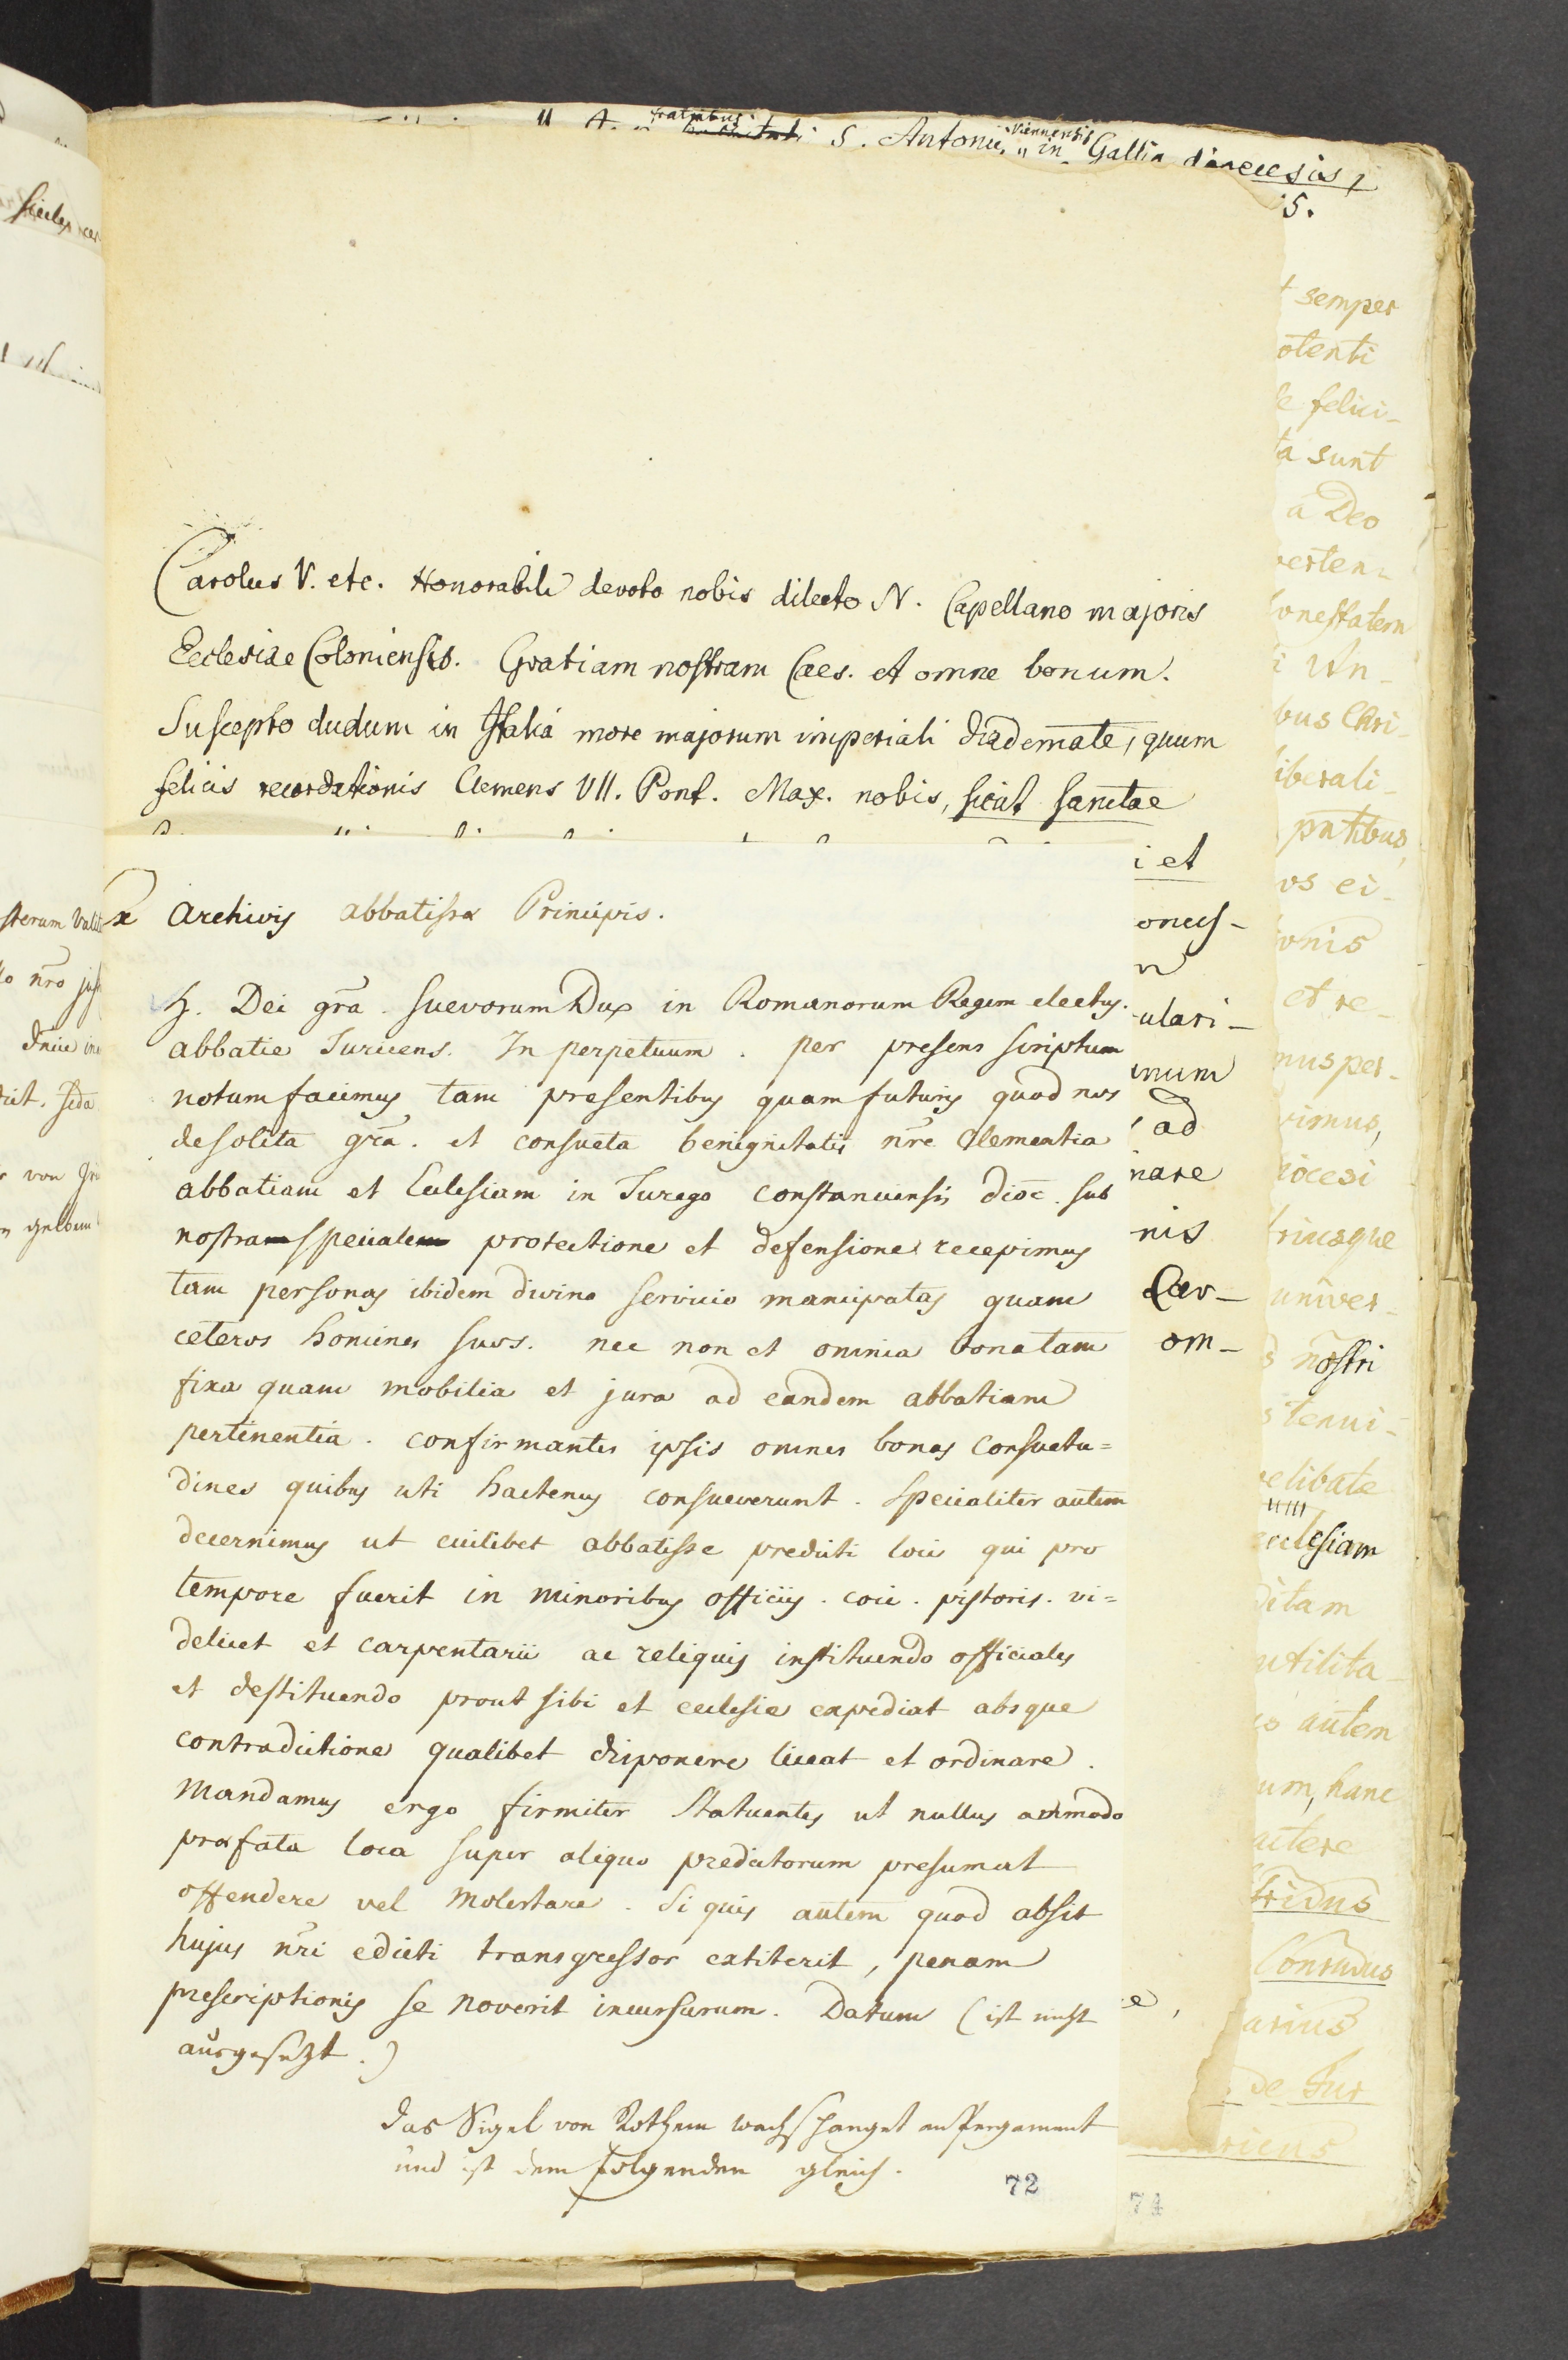 fratribus Viennensis
S. Antonii in Gallia diocesis,
5.
Carolus V. etc. Honorabili devoto nobis dilecto N. Capellano majoris
Ecclesiae Coloniensis. Gratiam nostram Caes. et omne bonum.
Suscepto dudum in Italiá more majorum imperiali diademate, quum
felicis recordationis Clemens VII. Pont. Max. nobis, sicut sanctae
Ex Archivis abbatissæ Principis.
H. Dei gr̄a. Suevorum Dux in Romanorum Regem electus.
abbatie Turicens. In perpetuum. per presens scriptum
notum facimus tam presentibus quam futuris quod nos
de solita gr̄a. et consueta benignitatis nr̄e Clementia
abbatiam et Ecclesiam in Turego constanciensis dioc̄. sub
nostra speciale protectione et defensione recepimus
tam personas ibidem divino servicio mancipatas quam
ceteros homines suos. nec non et omnia bona tam
fixa quam mobilia et jura ad eandem abbatiam
pertinentia. confirmantes ipsis omnes bonas Consuetu=
dines quibus uti hactenus consueverunt. Specialiter autem
decernimus ut cuilibet abbatisse predicti loci qui pro
tempore fuerit in minoribus officiis. coci. pistoris. vi=
delicet et carpentarii ac reliquis instituendo officiales
et destituendo prout sibi et ecclesie expediat absque
contradictione qualibet disponere liceat et ordinare.
Mandamus ergo firmiter Statuentes ut nullus ammodo
præfata loca super aliquo predictorum presumat
offendere vel molestare. Si quis autem quod absit
hujus nr̄i edicti transgressor extiterit, penam
prescriptionis se noverit incursurum. Datum (ist nicht
ausgesetzt.)
Das Sigel von Rothem wachs hanget an Pergament
und ist dem folgenden gleich.
72
i et
ulari-
ad
nis
om-
semper
otenti
felici-
ta sunt
a Deo
verten-
onestatem
bus Chri-
liberali-
vos ei-
ionis
et re-
mus per-
vimus,
diocesi
triusque
univer-
nostri
ecclesiam
ditam
utilita-
autem
um, hanc
arius
de Tur
74